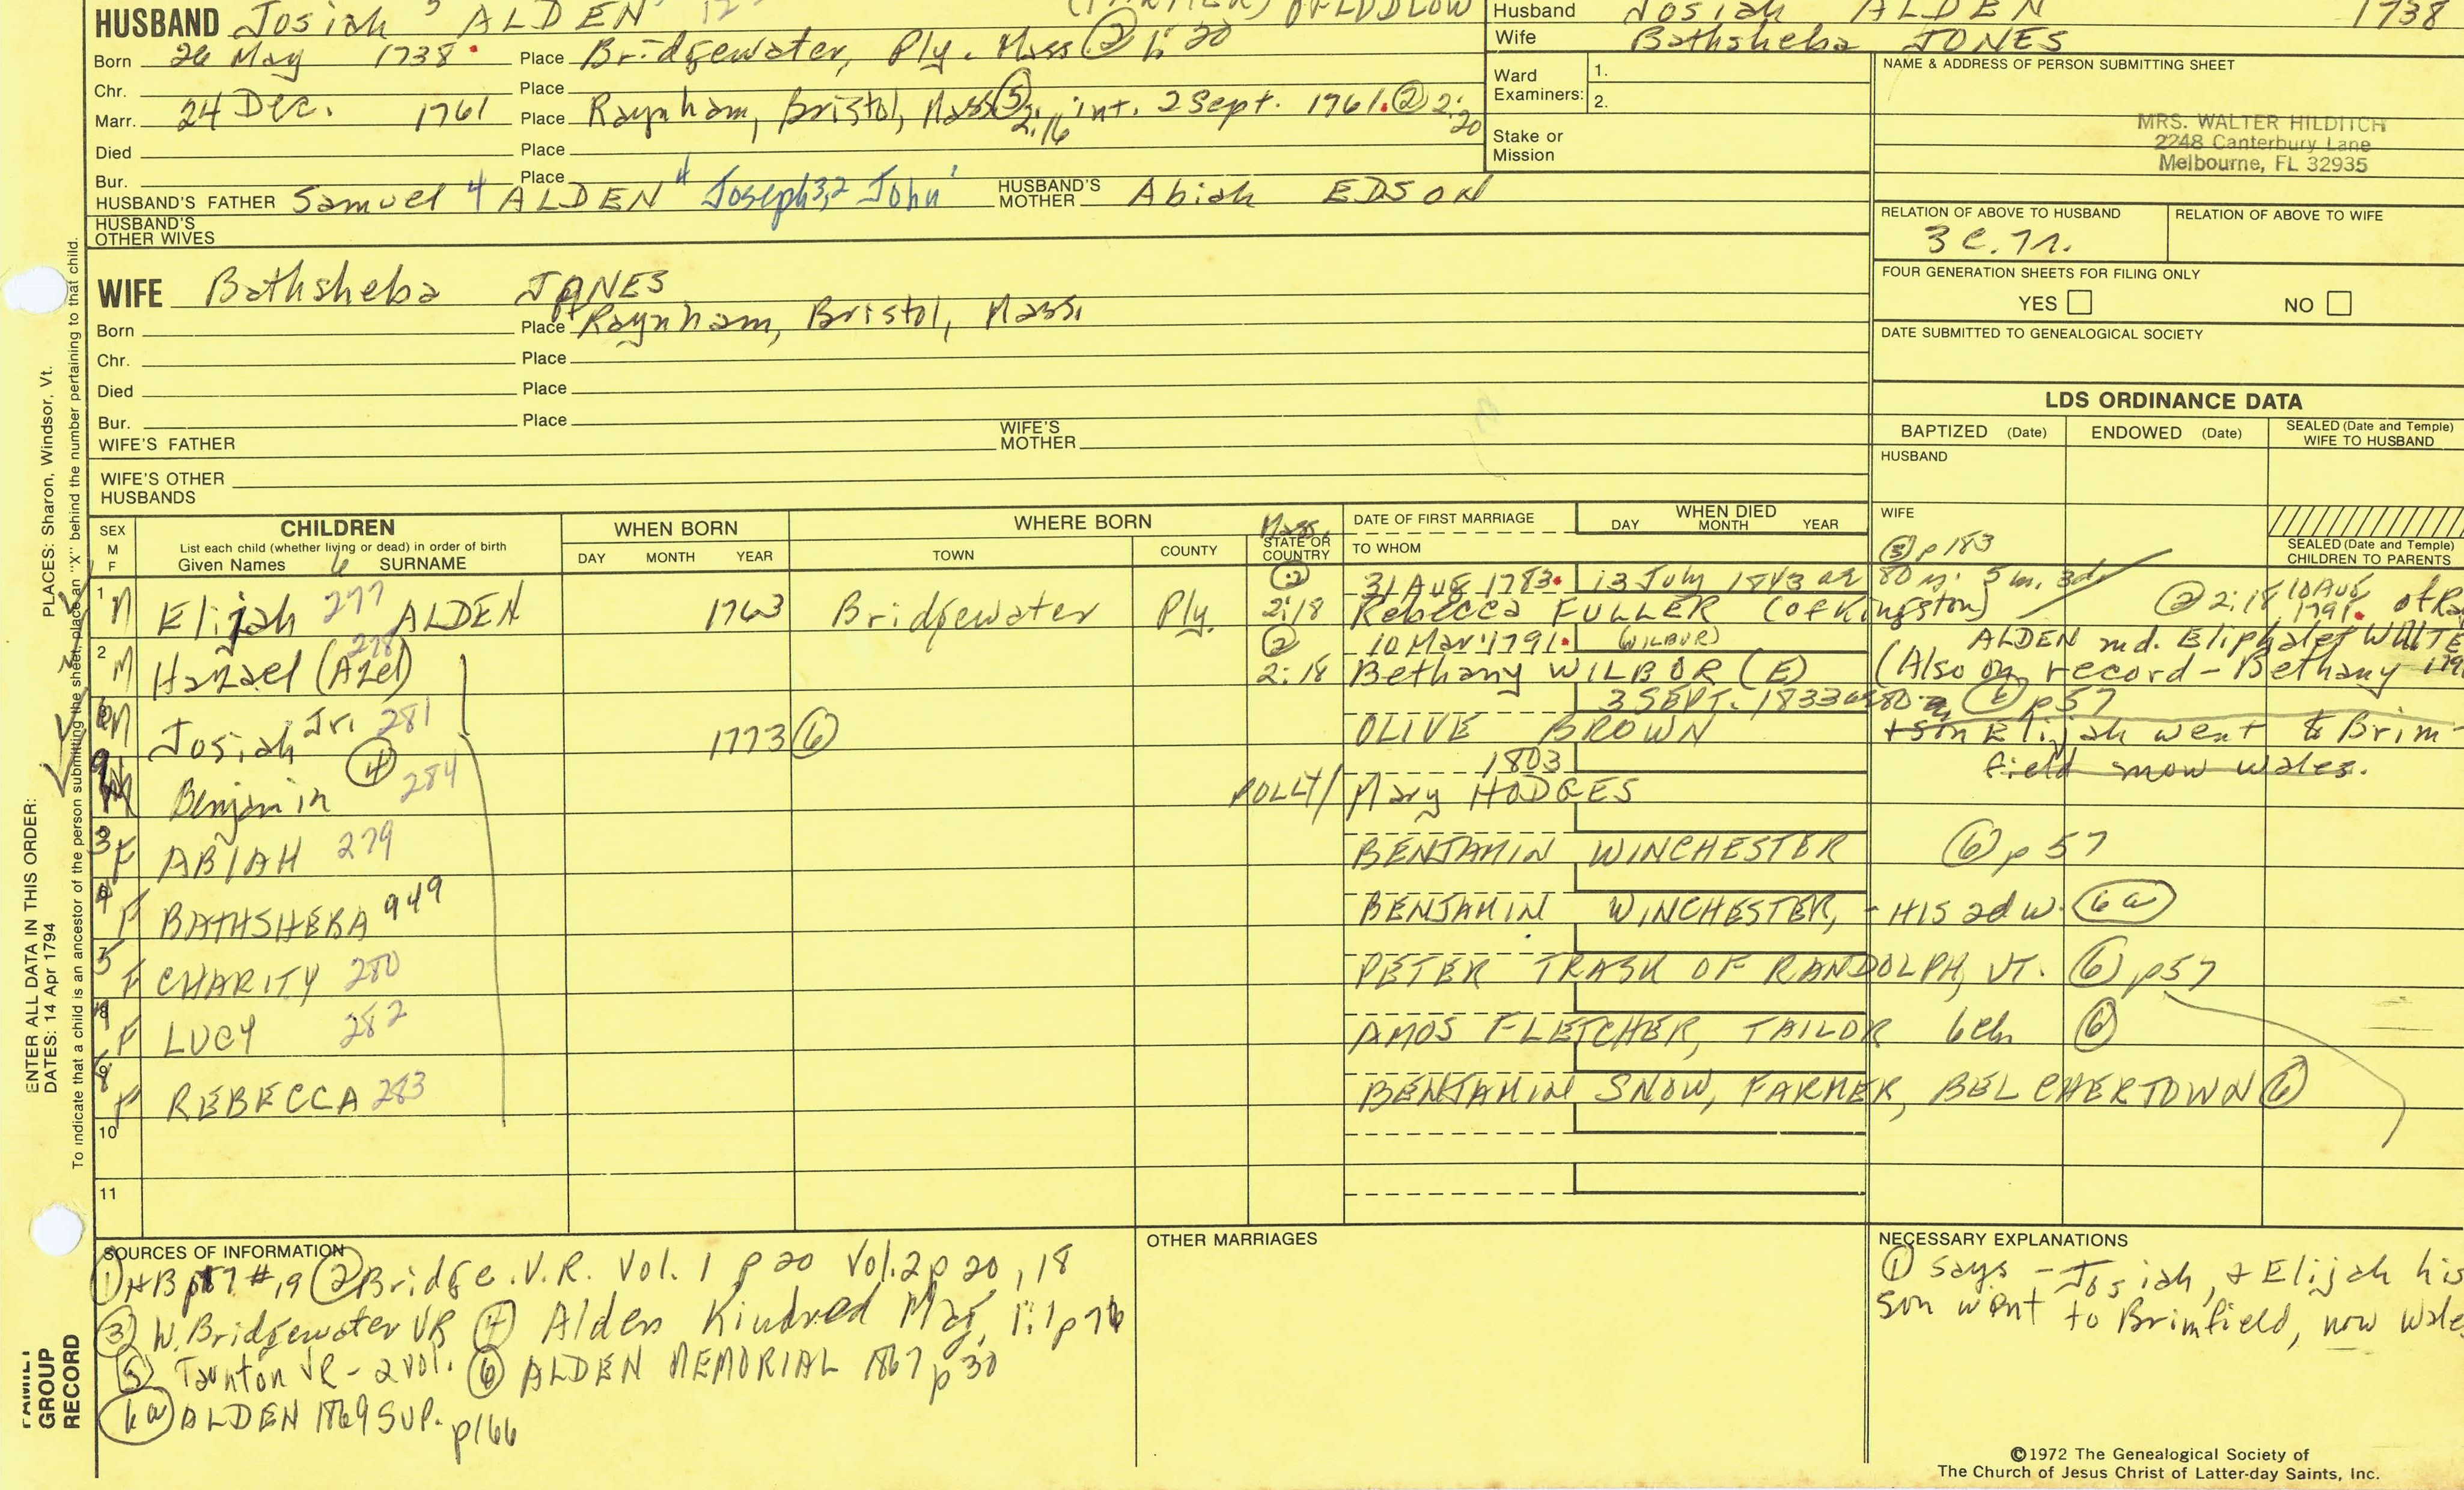 HUSBAND Josiah 5 ALDEN 12 OF LUDLOW
Born 26 May 1738 Place Bridgewater, Ply. Mass ② 1:20
Chr. Place
Marr. 24 Dec. 1761 Place Raynham, Bristol, Mass ⑤ 2:16 int. 2 Sept. 1761. ② 2:20
Died Place
Bur. Place
HUSBAND'S FATHER Samuel 4 ALDEN " Joseph 3,2 John 1 HUSBAND'S MOTHER Abiah EDSON
HUSBAND'S OTHER WIVES
Husband Josiah ALDEN 1738
Wife Bathsheba JONES
Ward Examiners: 1. 2.
Stake or Mission
NAME & ADDRESS OF PERSON SUBMITTING SHEET
MRS. WALTER HILDITCH
2248 Canterbury Lane
Melbourne, FL 32935
RELATION OF ABOVE TO HUSBAND RELATION OF ABOVE TO WIFE
3 c.
FOUR GENERATION SHEETS FOR FILING ONLY
YES NO
DATE SUBMITTED TO GENEALOGICAL SOCIETY
WIFE Bathsheba JONES
Born Place Raynham, Bristol, Mass.
Chr. Place
Died Place
Bur. Place
WIFE'S FATHER WIFE'S MOTHER
WIFE'S OTHER HUSBANDS
LDS ORDINANCE DATA
BAPTIZED (Date) ENDOWED (Date) SEALED (Date and Temple) WIFE TO HUSBAND
HUSBAND
WIFE
SEALED (Date and Temple) CHILDREN TO PARENTS
SEX M F CHILDREN
List each child (whether living or dead) in order of birth
Given Names 6 SURNAME
WHEN BORN DAY MONTH YEAR
WHERE BORN TOWN COUNTY Mass. STATE OR COUNTRY
DATE OF FIRST MARRIAGE TO WHOM
WHEN DIED DAY MONTH YEAR
③ p 183
1 M Elijah 277 ALDEN 1763 Bridgewater Ply. ② 2:18 31 AUG 1783. 13 July 1843 ae 80 y. 5 m. 3d
Rebecca FULLER (of Kingston) ② 2:18 10 AUG 1791. of Ra
2 M Hazael (Azel) 278 ② 2:18 10 Mar 1791. (WILBUR) ALDEN md. Eliphalet WHITE
Bethany WILBOR (E) (Also on record - Bethany 179
M Josiah Jr. 281 1773 ⑥ 3 SEPT. 1833 ⑥ p 57
OLIVE BROWN + son Elijah went to Brim-
field now Wales.
9 M Benjamin ④ 284 1803
POLLY/ Mary HODGES
3 F ABIAH 279 BENJAMIN WINCHESTER ⑥ p 57
4 F BATHSHEBA 949 BENJAMIN WINCHESTER, - HIS 2d w. 6a
5 F CHARITY 280 PETER TRASK OF RANDOLPH, VT. ⑥ p 57
F LUCY 282 AMOS FLETCHER, TAILOR 6 ch ⑥
8 F REBECCA 283 BENJAMIN SNOW, FARMER, BELCHERTOWN ⑥
10
11
SOURCES OF INFORMATION
① HB p 57 #19 ② Bridge. V.R. Vol. 1 p 20 Vol. 2 p 20, 18
③ W. Bridgewater VR ④ Alden Kindred Mag, 1:1 p 76
⑤ Taunton VR - 2 vol. ⑥ ALDEN MEMORIAL 1867 p 30
6a ALDEN 1869 SUP. p 166
OTHER MARRIAGES
NECESSARY EXPLANATIONS
① says - Josiah, & Elijah his
son went to Brimfield, now Wale
©1972 The Genealogical Society of
The Church of Jesus Christ of Latter-day Saints, Inc.
ENTER ALL DATA IN THIS ORDER:
DATES: 14 Apr 1794
PLACES: Sharon, Windsor, Vt.
To indicate that a child is an ancestor of the person submitting the sheet, place an "X" behind the number pertaining to that child.
FAMILY
GROUP
RECORD